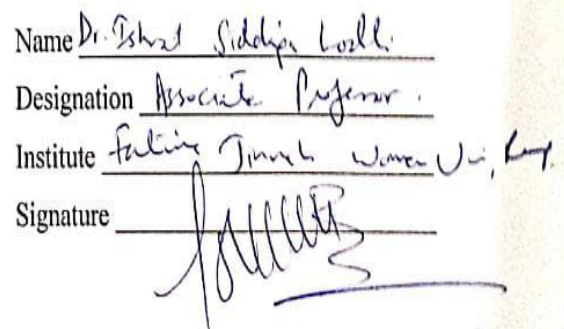 Name Dr. Ishrat Siddiqa Lodhi
Designation Associate Professor.
Institute Fatima Jinnah Women Uni,
Signature